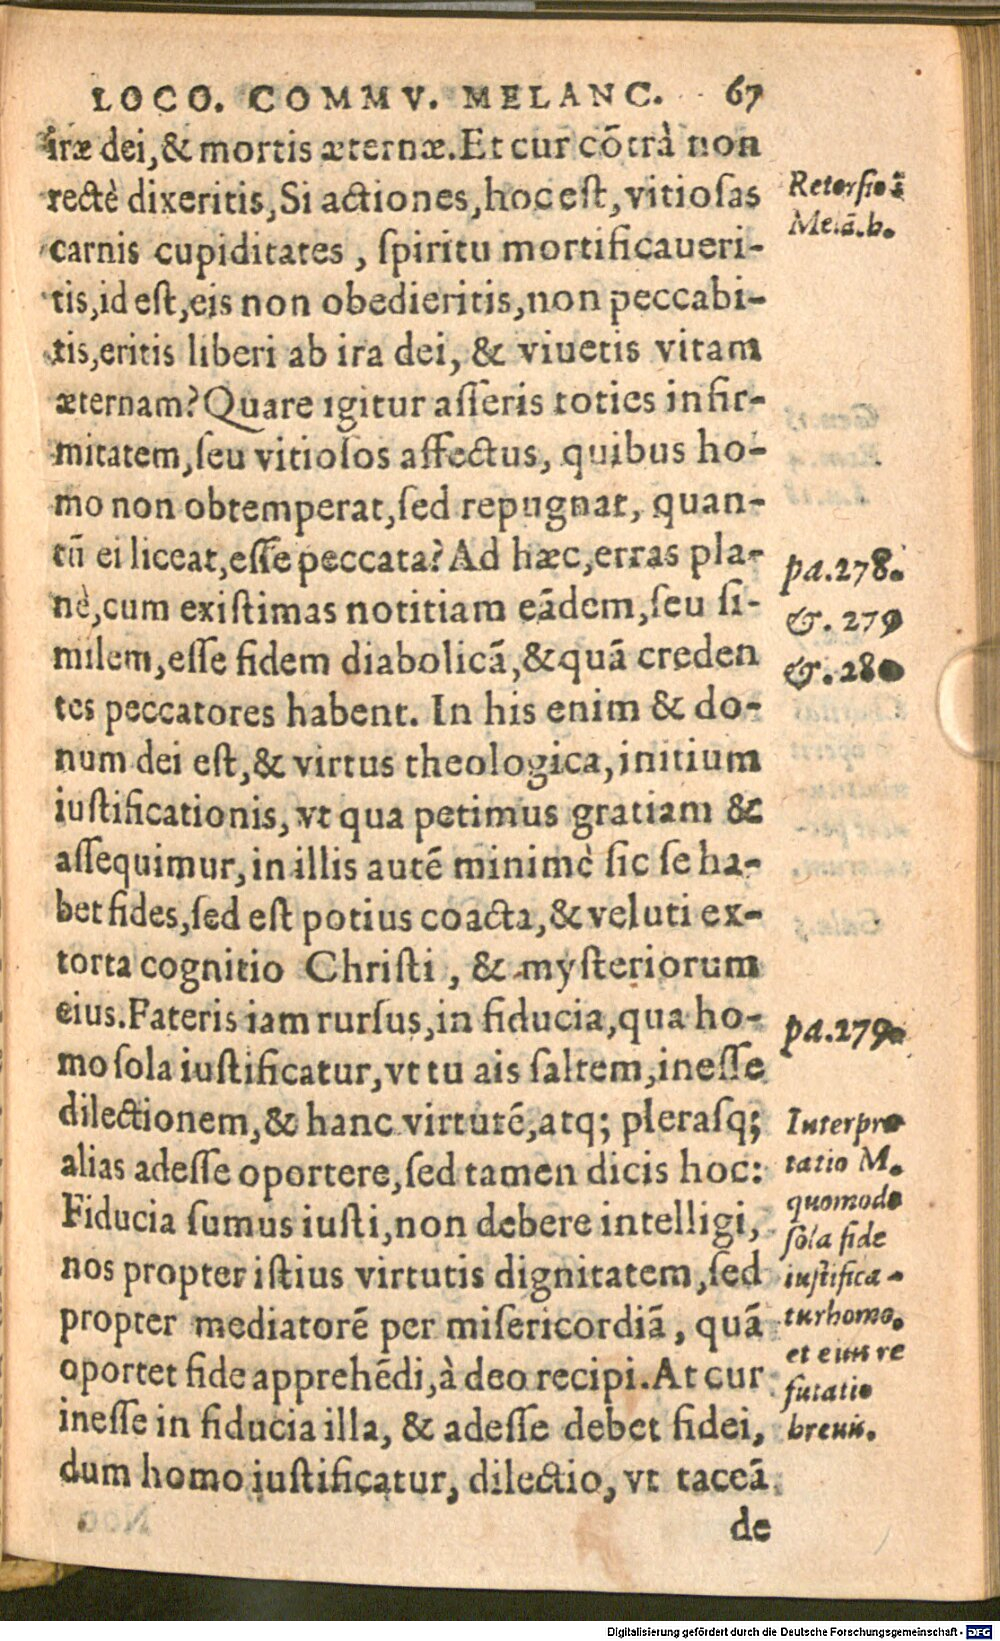 LOCO. COMMV. MELANC. 67
iræ dei, & mortis æternæ. Et cur cōtrà non
rectè dixeritis, Si actiones, hoc est, vitiosas
carnis cupiditates, spiritu mortificaueri-
tis, id est, eis non obedieritis, non peccabi-
tis, eritis liberi ab ira dei, & viuetis vitam
æternam? Quare igitur asseris toties infir-
mitatem, seu vitiosos affectus, quibus ho-
mo non obtemperat, sed repugnat, quan-
tū ei liceat, esse peccata? Ad hæc, erras pla-
nè, cum existimas notitiam eādem, seu si-
milem, esse fidem diabolicā, & quā creden
tes peccatores habent. In his enim & do-
num dei est, & virtus theologica, initium
iustificationis, vt qua petimus gratiam &
assequimur, in illis autē minimè sic se ha-
bet fides, sed est potius coacta, & veluti ex-
torta cognitio Christi, & mysteriorum
eius. Fateris iam rursus, in fiducia, qua ho-
mo sola iustificatur, vt tu ais saltem, inesse
dilectionem, & hanc virtutē, atq; plerasq;
alias adesse oportere, sed tamen dicis hoc:
Fiducia sumus iusti, non debere intelligi,
nos propter istius virtutis dignitatem, sed
propter mediatorē per misericordiā, quā
oportet fide apprehēdi, à deo recipi. At cur
inesse in fiducia illa, & adesse debet fidei,
dum homo iustificatur, dilectio, vt taceā
de
Retorsio ĩ
Melā. b.
pa. 278.
&. 279
&. 280
pa. 279.
Interpre
tatio M.
quomodo
sola fide
iustifica-
tur homo,
et eius re
futatio
breuis.
Digitalisierung gefördert durch die Deutsche Forschungsgemeinschaft - DFG